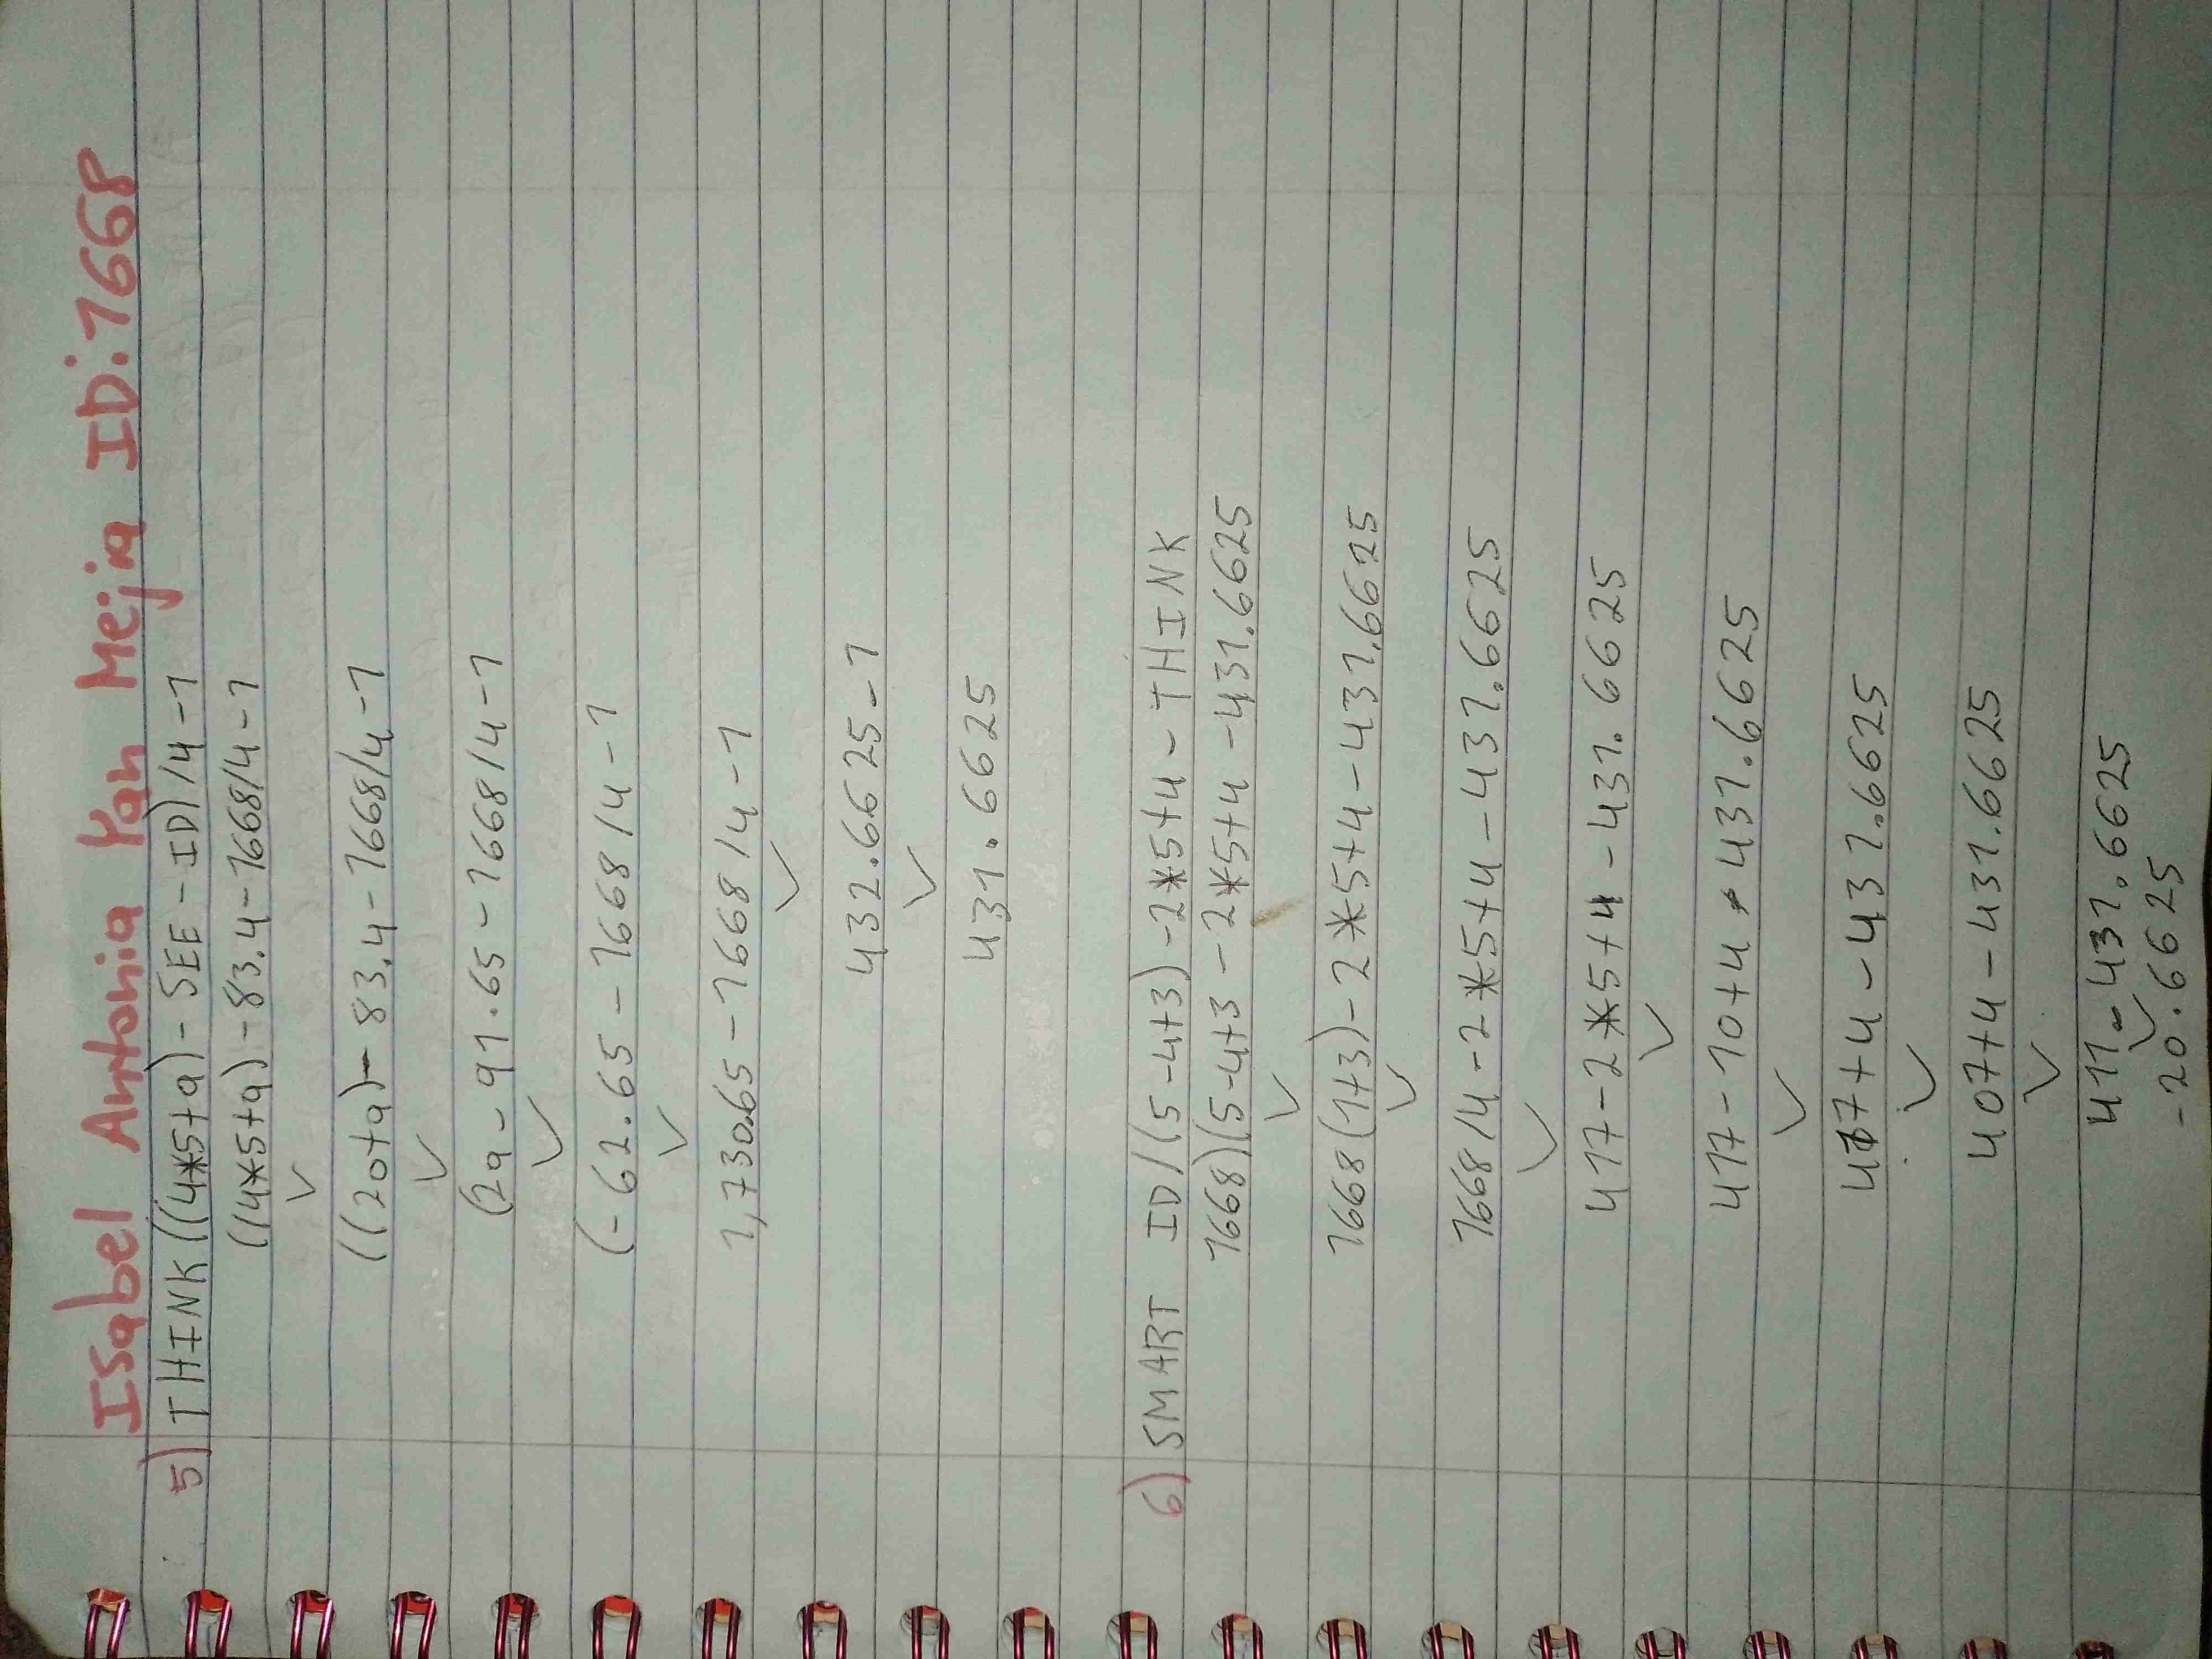 Isabel Antonia Yah Mejia ID:1668
5) THINK ((4*5+9)-SEE-ID)/4-1
((4*5+9)-83.4-1668/4-1
((20+9)-83.4-1668/4-1
(29-91.65-1668/4-1
(-62.65-1668/4-1
1,730.65-1668/4-1
432.6625-1
431.6625
6) SMART ID/(5-4+3)-2*5+4-THINK
1668)(5-4+3-2*5+4-431.6625
1668(1+3)-2*5+4-431.6625
1668/4-2*5+4-431.6625
417-2*5+4-431.6625
417-10+4-431.6625
417+4-431.6625
407+4-431.6625
411-431.6625
-20.6625